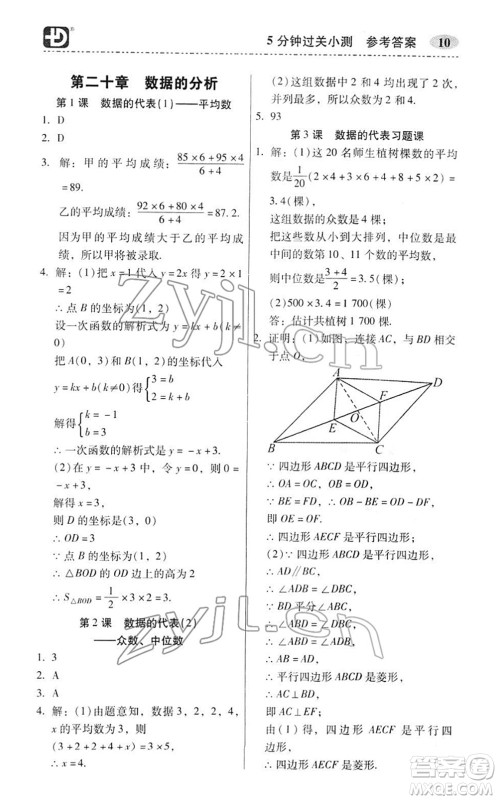 5 分钟过关小测 参考答案 10
第二十章 数据的分析
第 1 课 数据的代表(1)——平均数
1. D
2. D
3. 解：甲的平均成绩：(85×6+95×4)/(6+4)
=89.
乙的平均成绩：(92×6+80×4)/(6+4)=87.2.
因为甲的平均成绩大于乙的平均成绩，所以甲将被录取.
4. 解：(1)把 x=1 代入 y=2x 得 y=2×1
=2
∴ 点 B 的坐标为(1，2)
设一次函数的解析式为 y=kx+b(k≠
0)
把 A(0，3)和 B(1，2)代入
y=kx+b(k≠0)得{3=b 2=k+b
解得{k=-1 b=3
∴ 一次函数的解析式是 y=-x+3.
(2)在 y=-x+3 中，令 y=0
解得 x=3
则 D 的坐标是(3，0)
∵ 点 B 的坐标为(1，2)
∴ △BOD 的 OD 边上的高为 2
∴ S△BOD=1/2×3×2=3.
第 2 课 数据的代表(2)
——众数、中位数
1. 3
2. A
3. A
4. 解：(1)由题意知，数据 3，2，2，4，
x 的平均数为 3，则
(3+2+2+4+x)÷5=3
∴ x=4.
(2)这组数据中 2 和 4 都出现了 2 次，
并列最多，所以众数为 2 和 4.
5. 93
第 3 课 数据的代表习题课
1. 解：(1)这 20 名师生植树棵数的平均
数是 1/20
3.4(棵)
这组数据的众数是 4 棵；
把这些数从小到大排列，中位数是最
中间的第 10、11 个数的平均数
则中位数是(3+4)/2=3.5(棵)；
(2)500×3.4=1 700(棵)
答：估计共植树 1 700 棵.
2. 证明：(1)如图，连接 AC，与 BD 相交
于点 O
A
D
F
O
E
B
C
∵ 四边形 ABCD 是平行四边形
∴ OA=OC，OB=OD
∵ BE=FD，∴ OB-BE=OD-DF，
即 OE=OF.
∴ 四边形 AECF 是平行四边形.
(2)∵ 四边形 ABCD 是平行四边形
∴ AD∥BC，
∴ ∠ADB=∠DBC
∵ BD 平分∠ABC，
∴ ∠ABD=∠DBC
∴ ∠ABD=∠ADB，
∴ AB=AD
∴ 平行四边形 ABCD 是菱形，
∴ AC⊥BD
由(1)得，四边形 AECF 是平行四
边形
∴ 平行四边形 AECF 是菱形，
即四边形 AECF 是菱形.
zyjl.cn
zyjl.cn